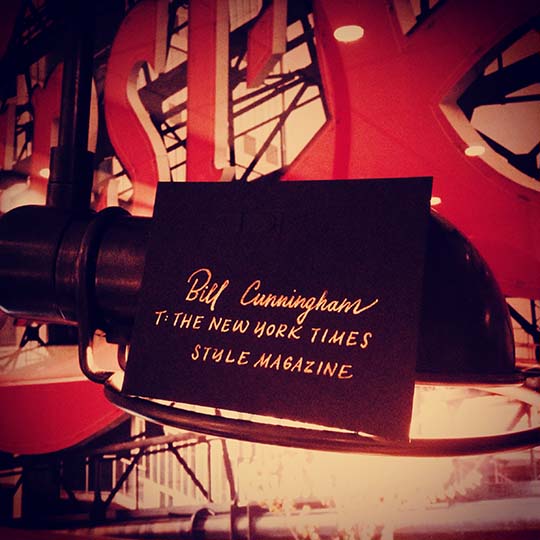 Bill Cunningham
T: THE NEW YORK TIMES
STYLE MAGAZINE